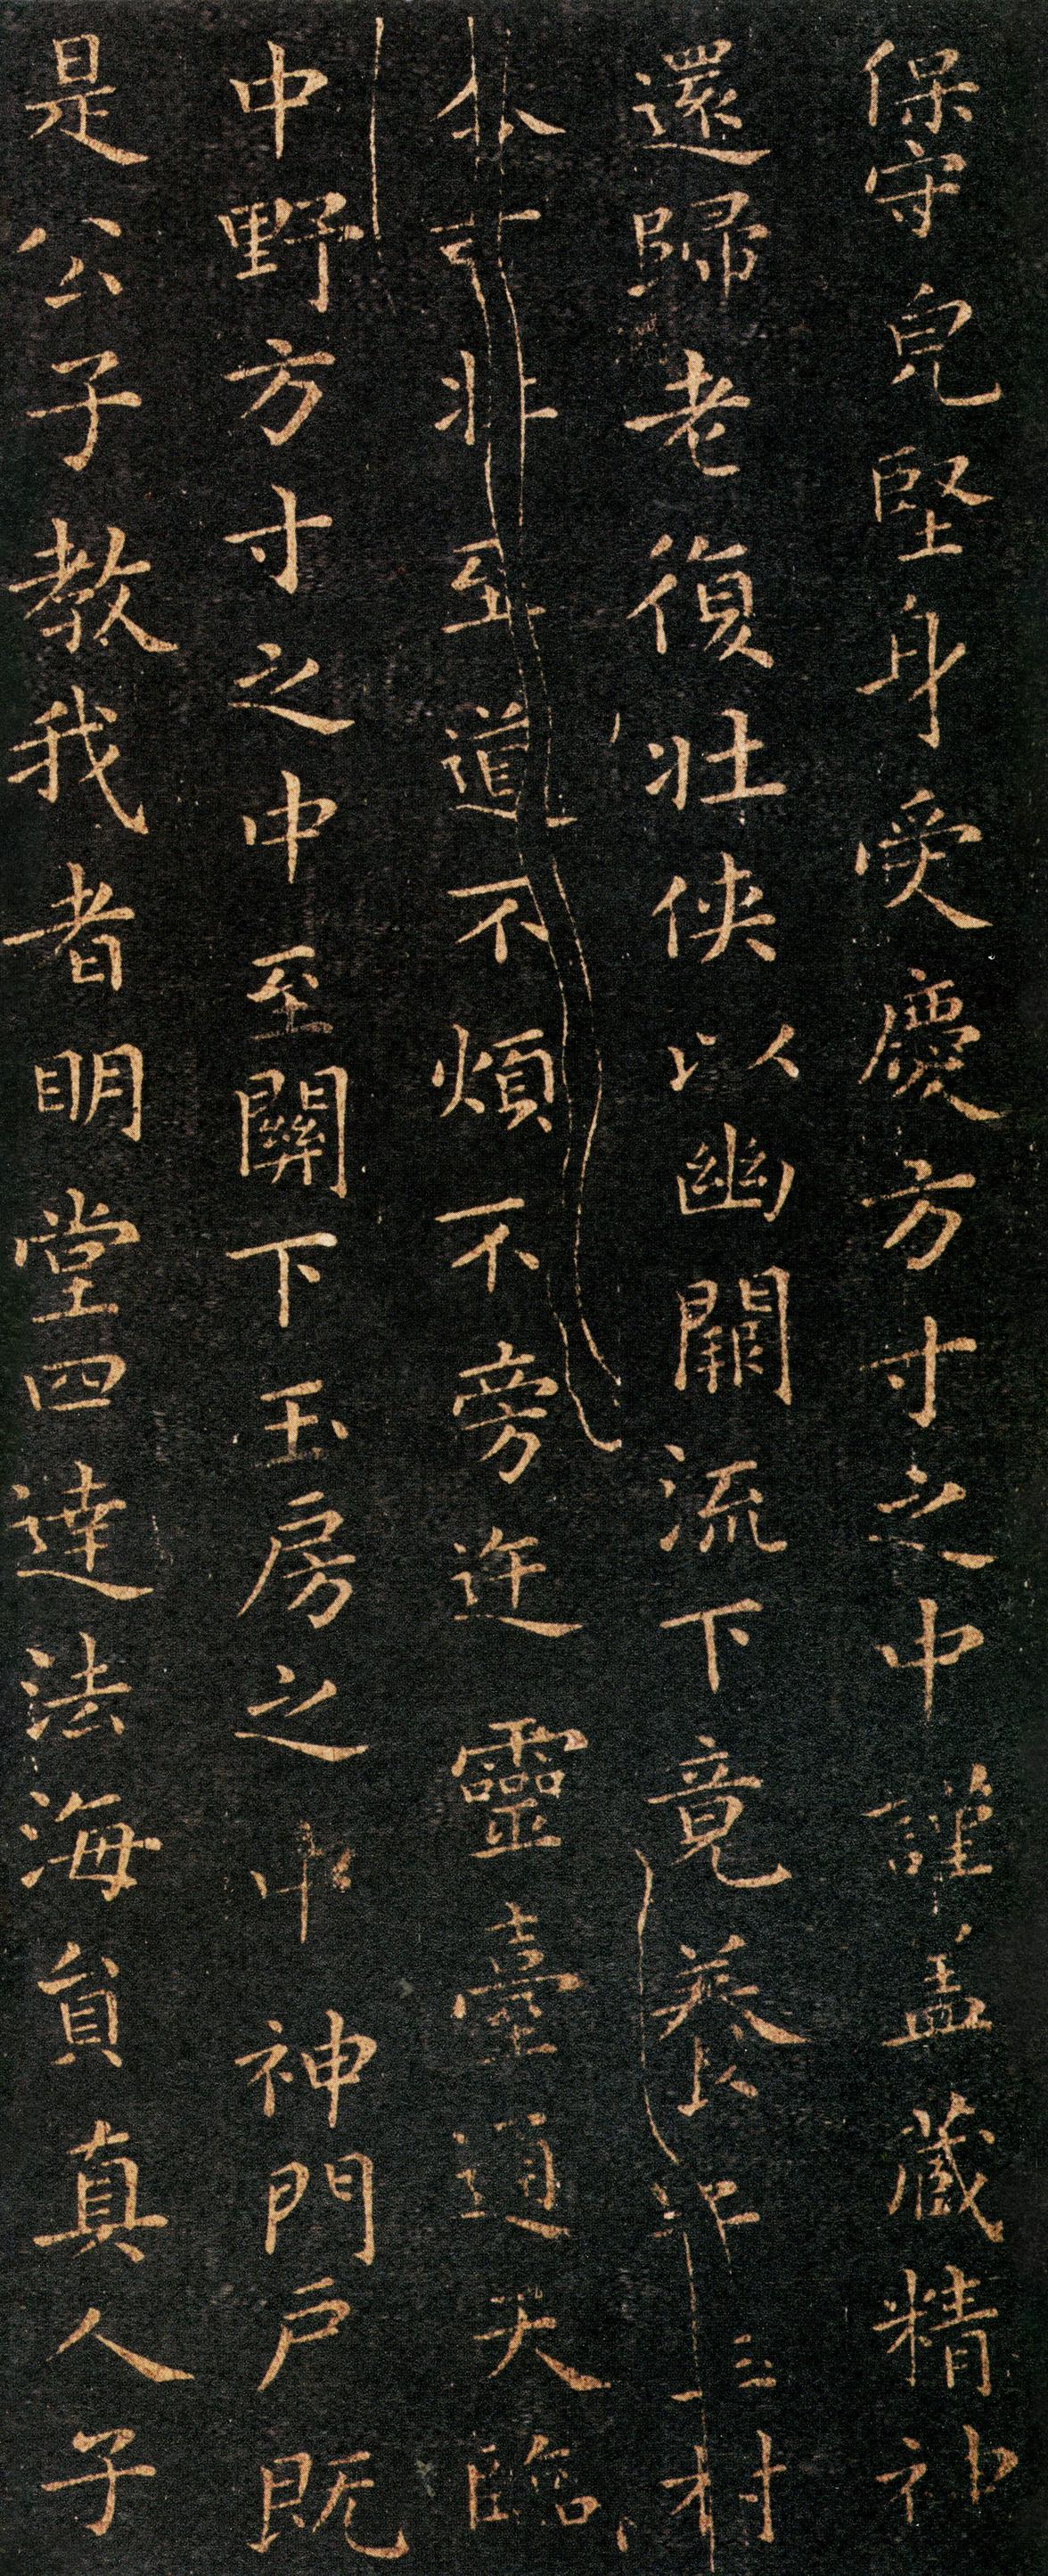 保守皃堅身受慶方寸之中謹盖藏精神
還歸老復壯俠以幽闕流下竟養子玉樹杖
可扶至道不煩不旁迕靈臺通天臨
中野方寸之中至關下玉房之中神門戶既
是公子教我者明堂四達法海員真人子